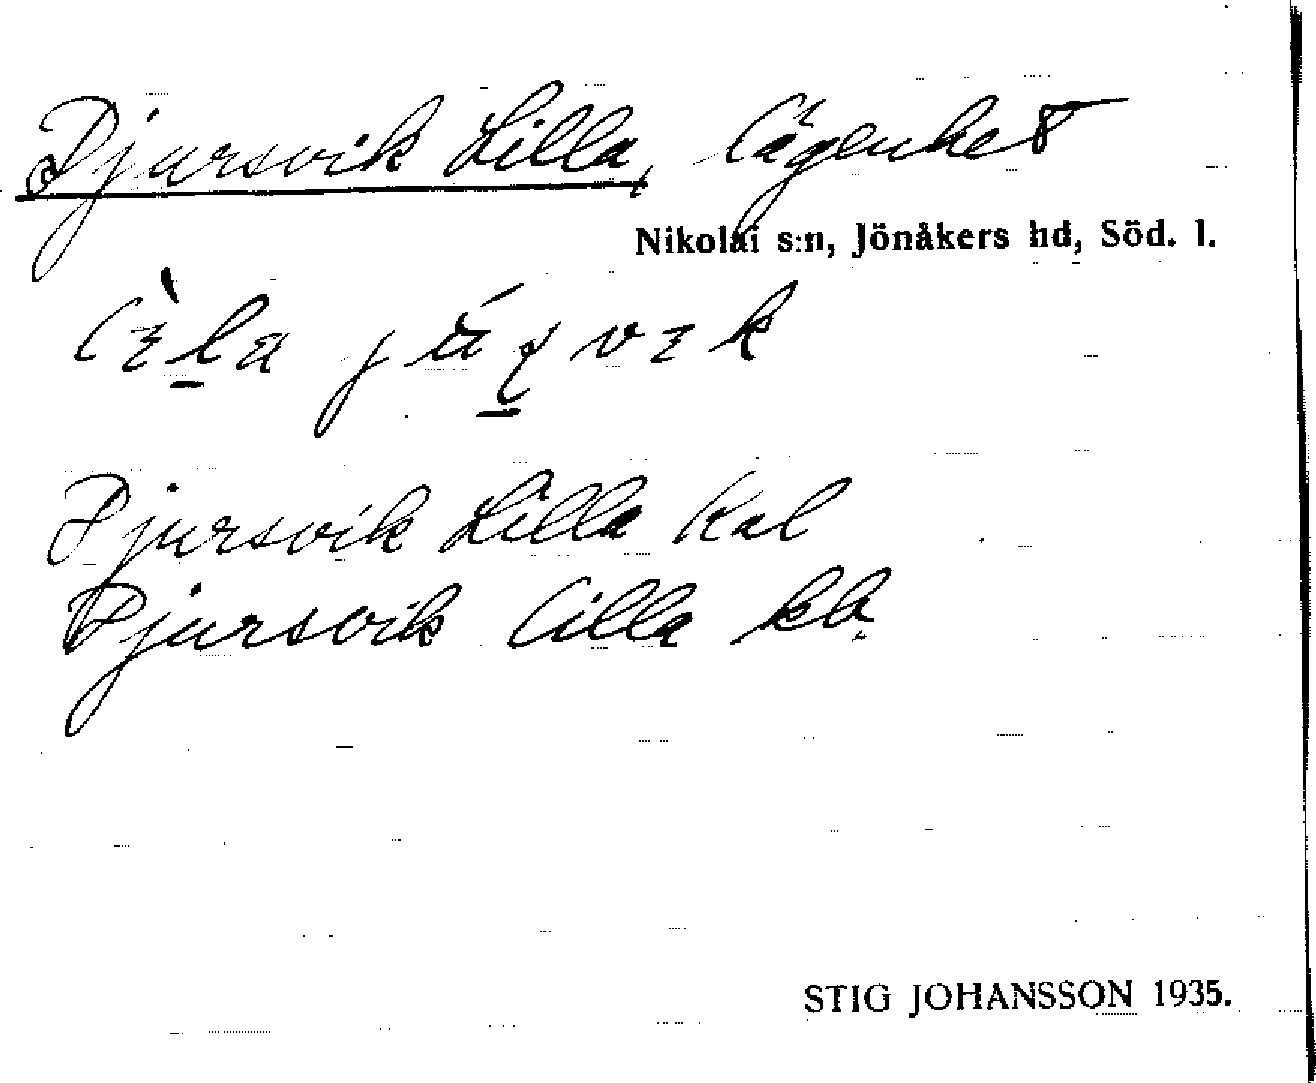 Djursvik Lilla, lägenhet
Nikolai s:n, Jönåkers hd, Söd. l.
Djursvik Lilla Kal
Djursvik Lilla kb.
STIG JOHANSSON 1935.